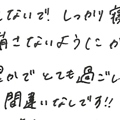 しないで しっかり寝
崩さないようにが
豊かで とても過ごし
間違いなしです!!